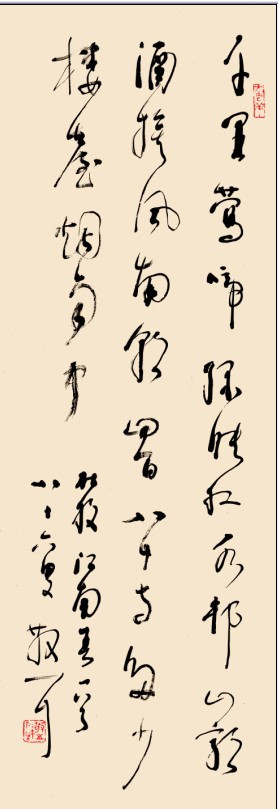 千里莺啼绿映红水邨山郭
酒旗风南朝四百八十寺多少
楼臺烟雨中
杜牧江南春一首
八十六叟